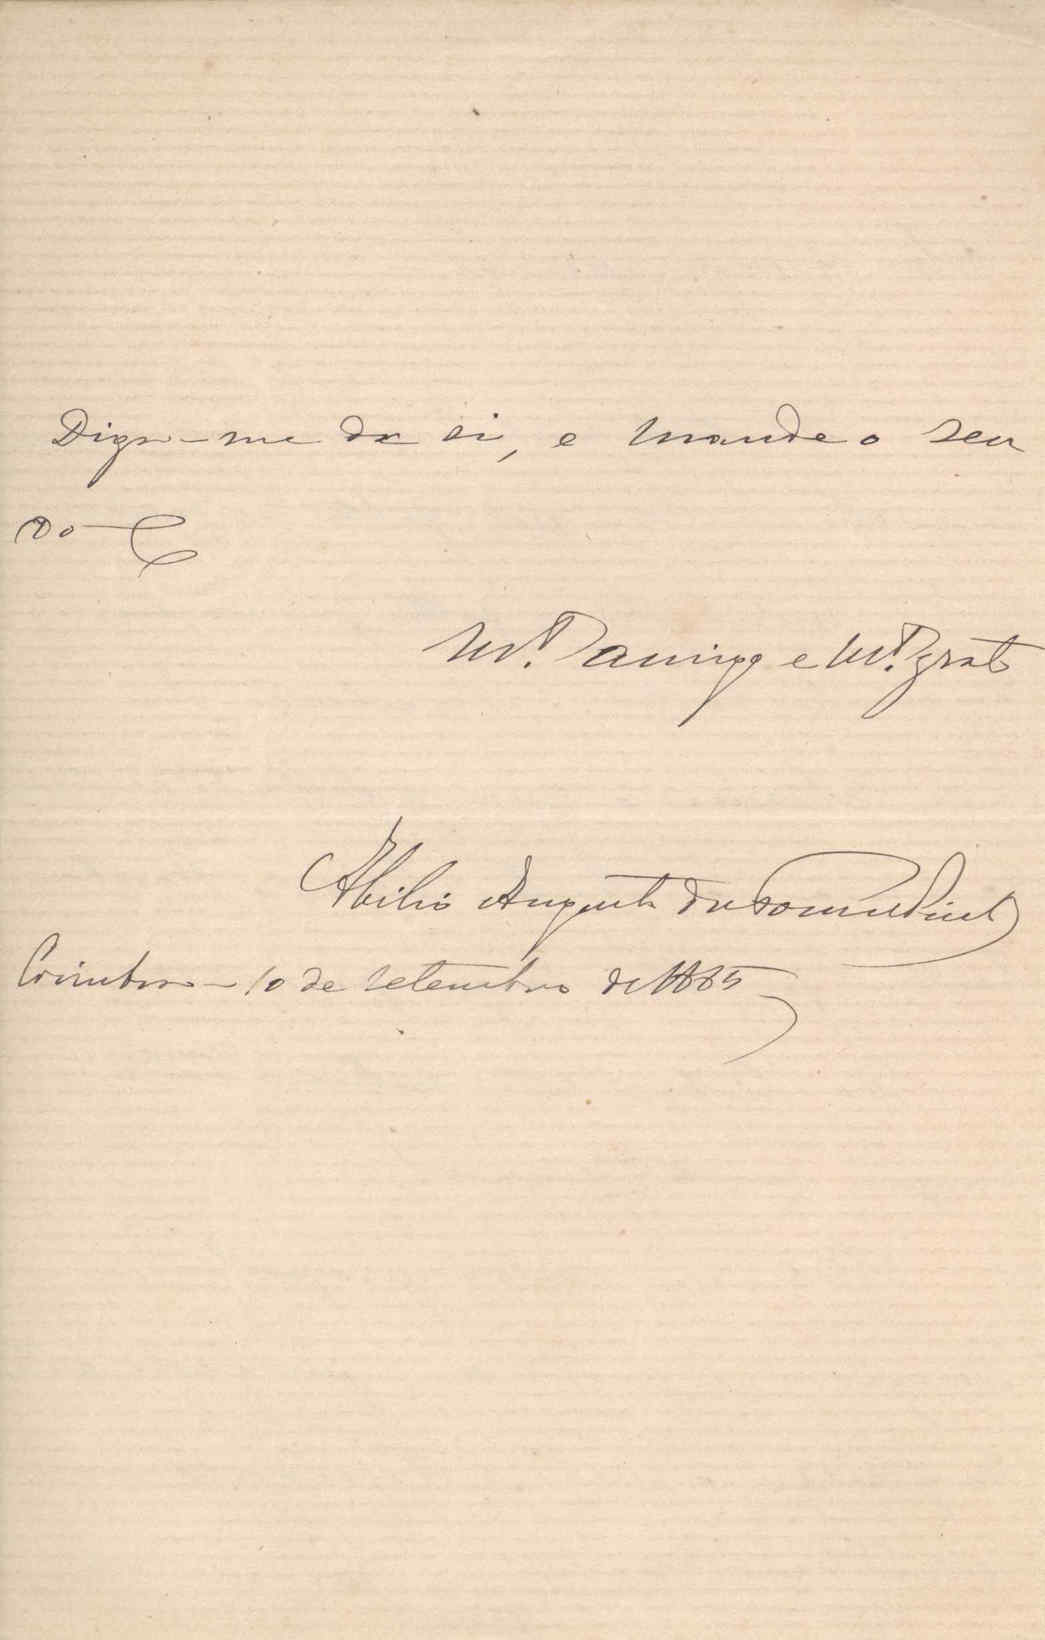 Diga-me de si, e mande o seu
do C
M.to amigo e M.to grato
Abilio Augusto da Fonseca Pinto
Coimbra - 10 de setembro de 1885